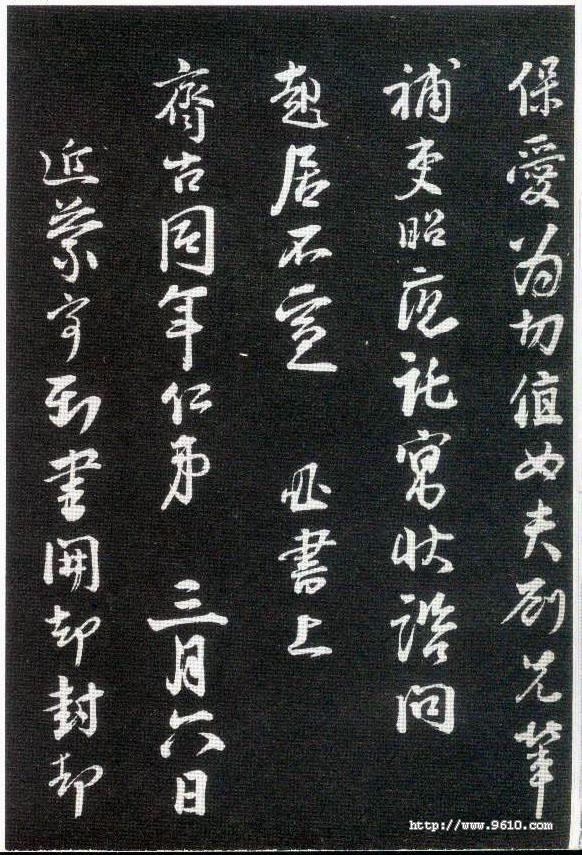 保愛為切值女夫劉兄葷
補吏昭應託寓狀諮問
起居不宣 書上
齊古同年仁弟 三月六日
近蒙寄到書開却封却
http://www.9610.com